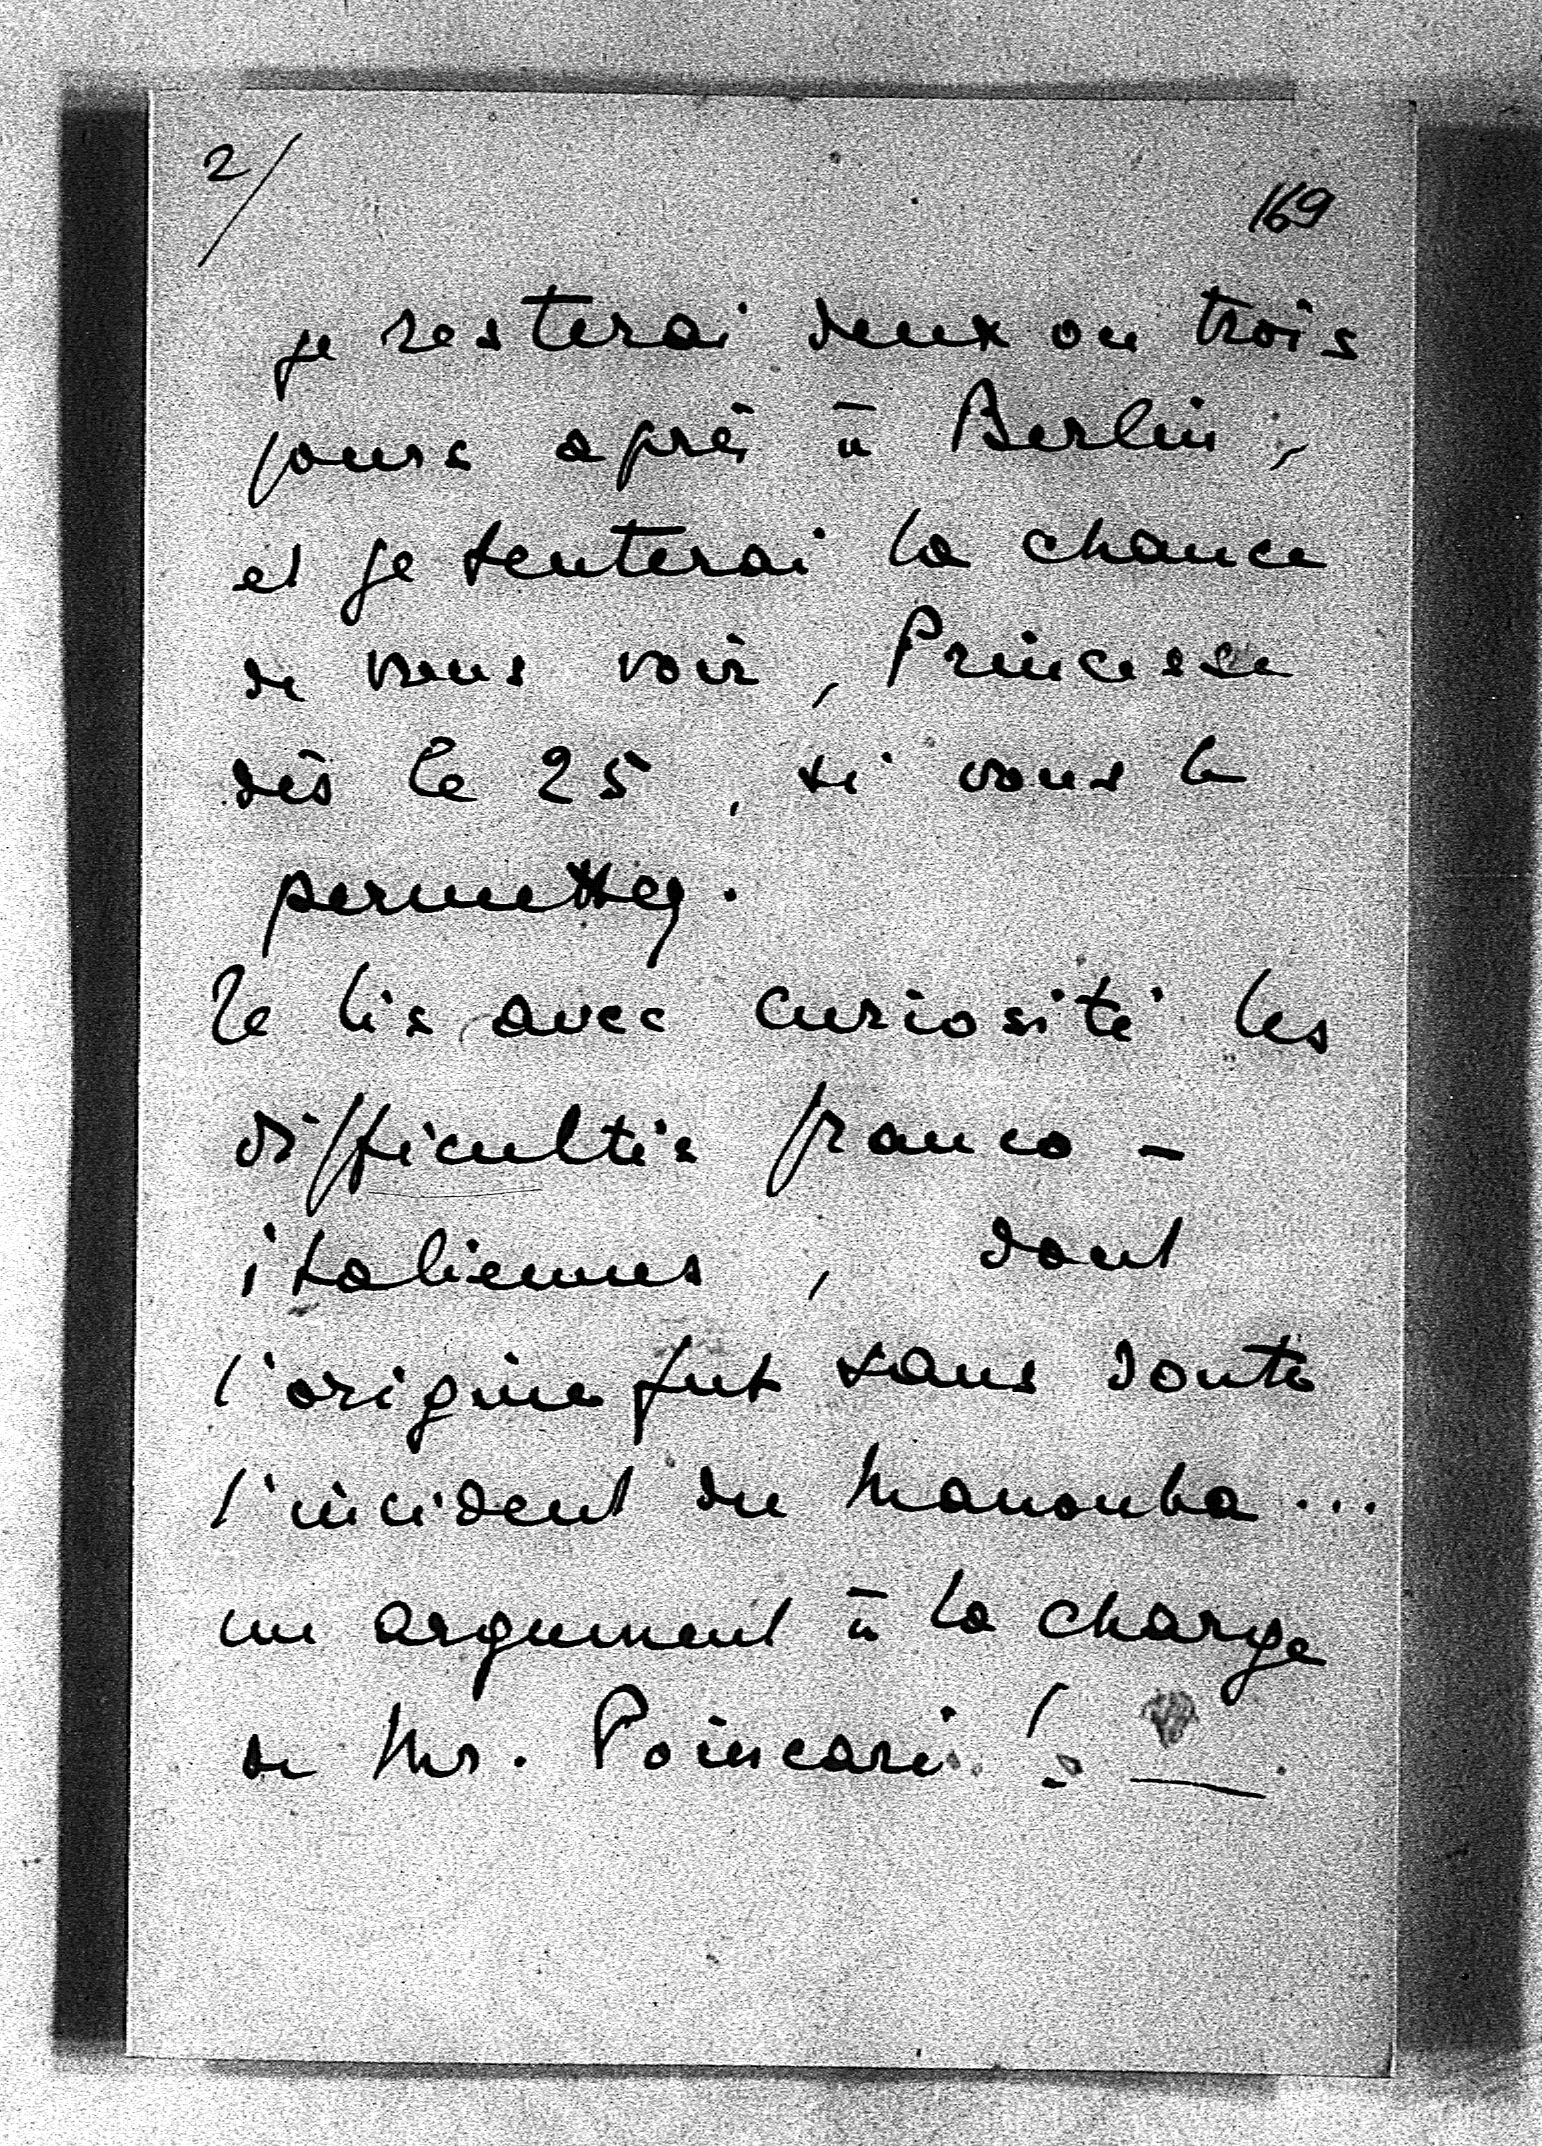 2/
169
je resterai deux ou trois
jours après à Berlin,
et je tenterai la chance
de vous voir, Princesse
dès le 25, si vous le
permettez.
Je lis avec curiosité les
difficultés franco-
italiennes, dont
l'origine fut sans doute
l'incident du Manouba...
un argument à la charge
de Mr. Poincaré! —